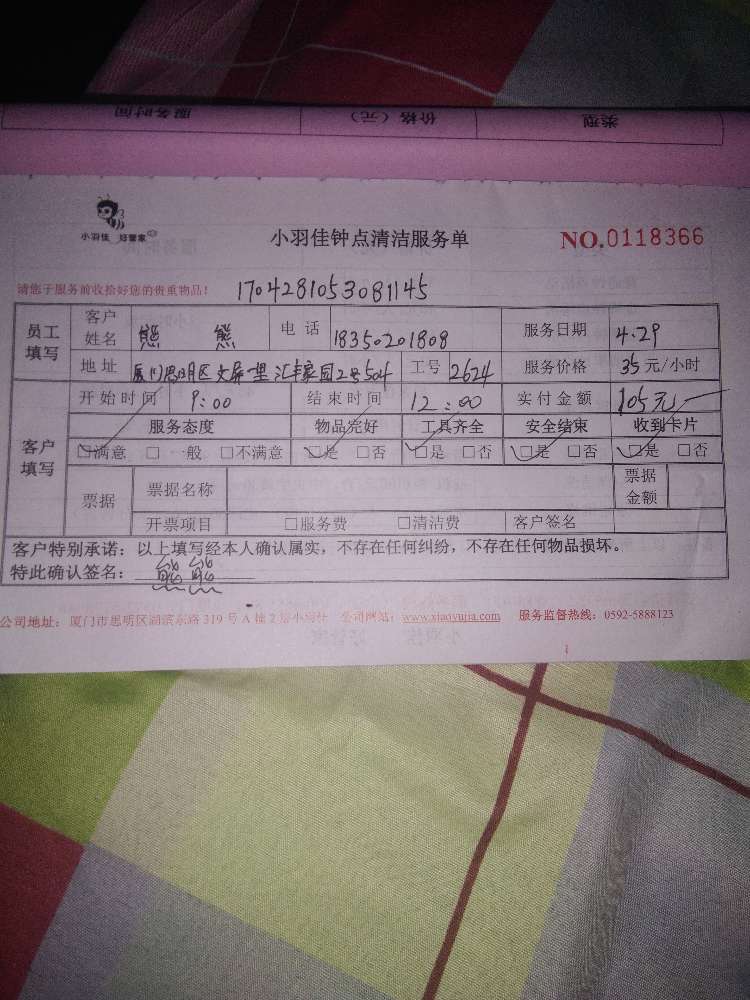 类型 价格（元） 服务时间
小羽佳 好管家
小羽佳钟点清洁服务单
NO.0118366
请您于服务前收拾好您的贵重物品！
1704281053081145
员工填写 客户姓名 熊 熊 电话 18350201808 服务日期 4.29
地址 厦门思明区文屏 汇丰家园2号504 工号 2624 服务价格 35元/小时
开始时间 9:00 结束时间 12:00 实付金额 105元
客户填写 服务态度 物品完好 工具齐全 安全结束 收到卡片
☑满意 □一般 □不满意 ☑是 □否 ☑是 □否 ☑是 □否 ☑是 □否
票据 票据名称 票据金额
开票项目 □服务费 □清洁费 客户签名
客户特别承诺：以上填写经本人确认属实，不存在任何纠纷，不存在任何物品损坏。
特此确认签名：熊熊
公司地址：厦门市思明区湖滨东路319号A幢2层小羽佳 公司网站：www.xiaoyujia.com 服务监督热线：0592-5888123
1